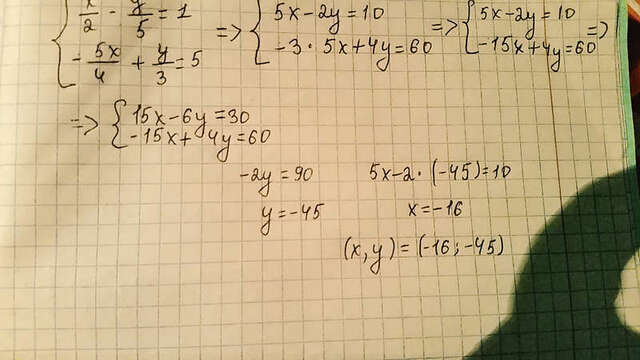 x/2 - y/5 = 1 => { 5x-2y=10 => { 5x-2y=10 =>
-5x/4 + y/3 = 5 { -3·5x+4y=60 { -15x+4y=60
=> { 15x-6y=30
-15x+4y=60
-2y=90 5x-2·(-45)=10
y=-45 x=-16
(x,y)=(-16;-45)